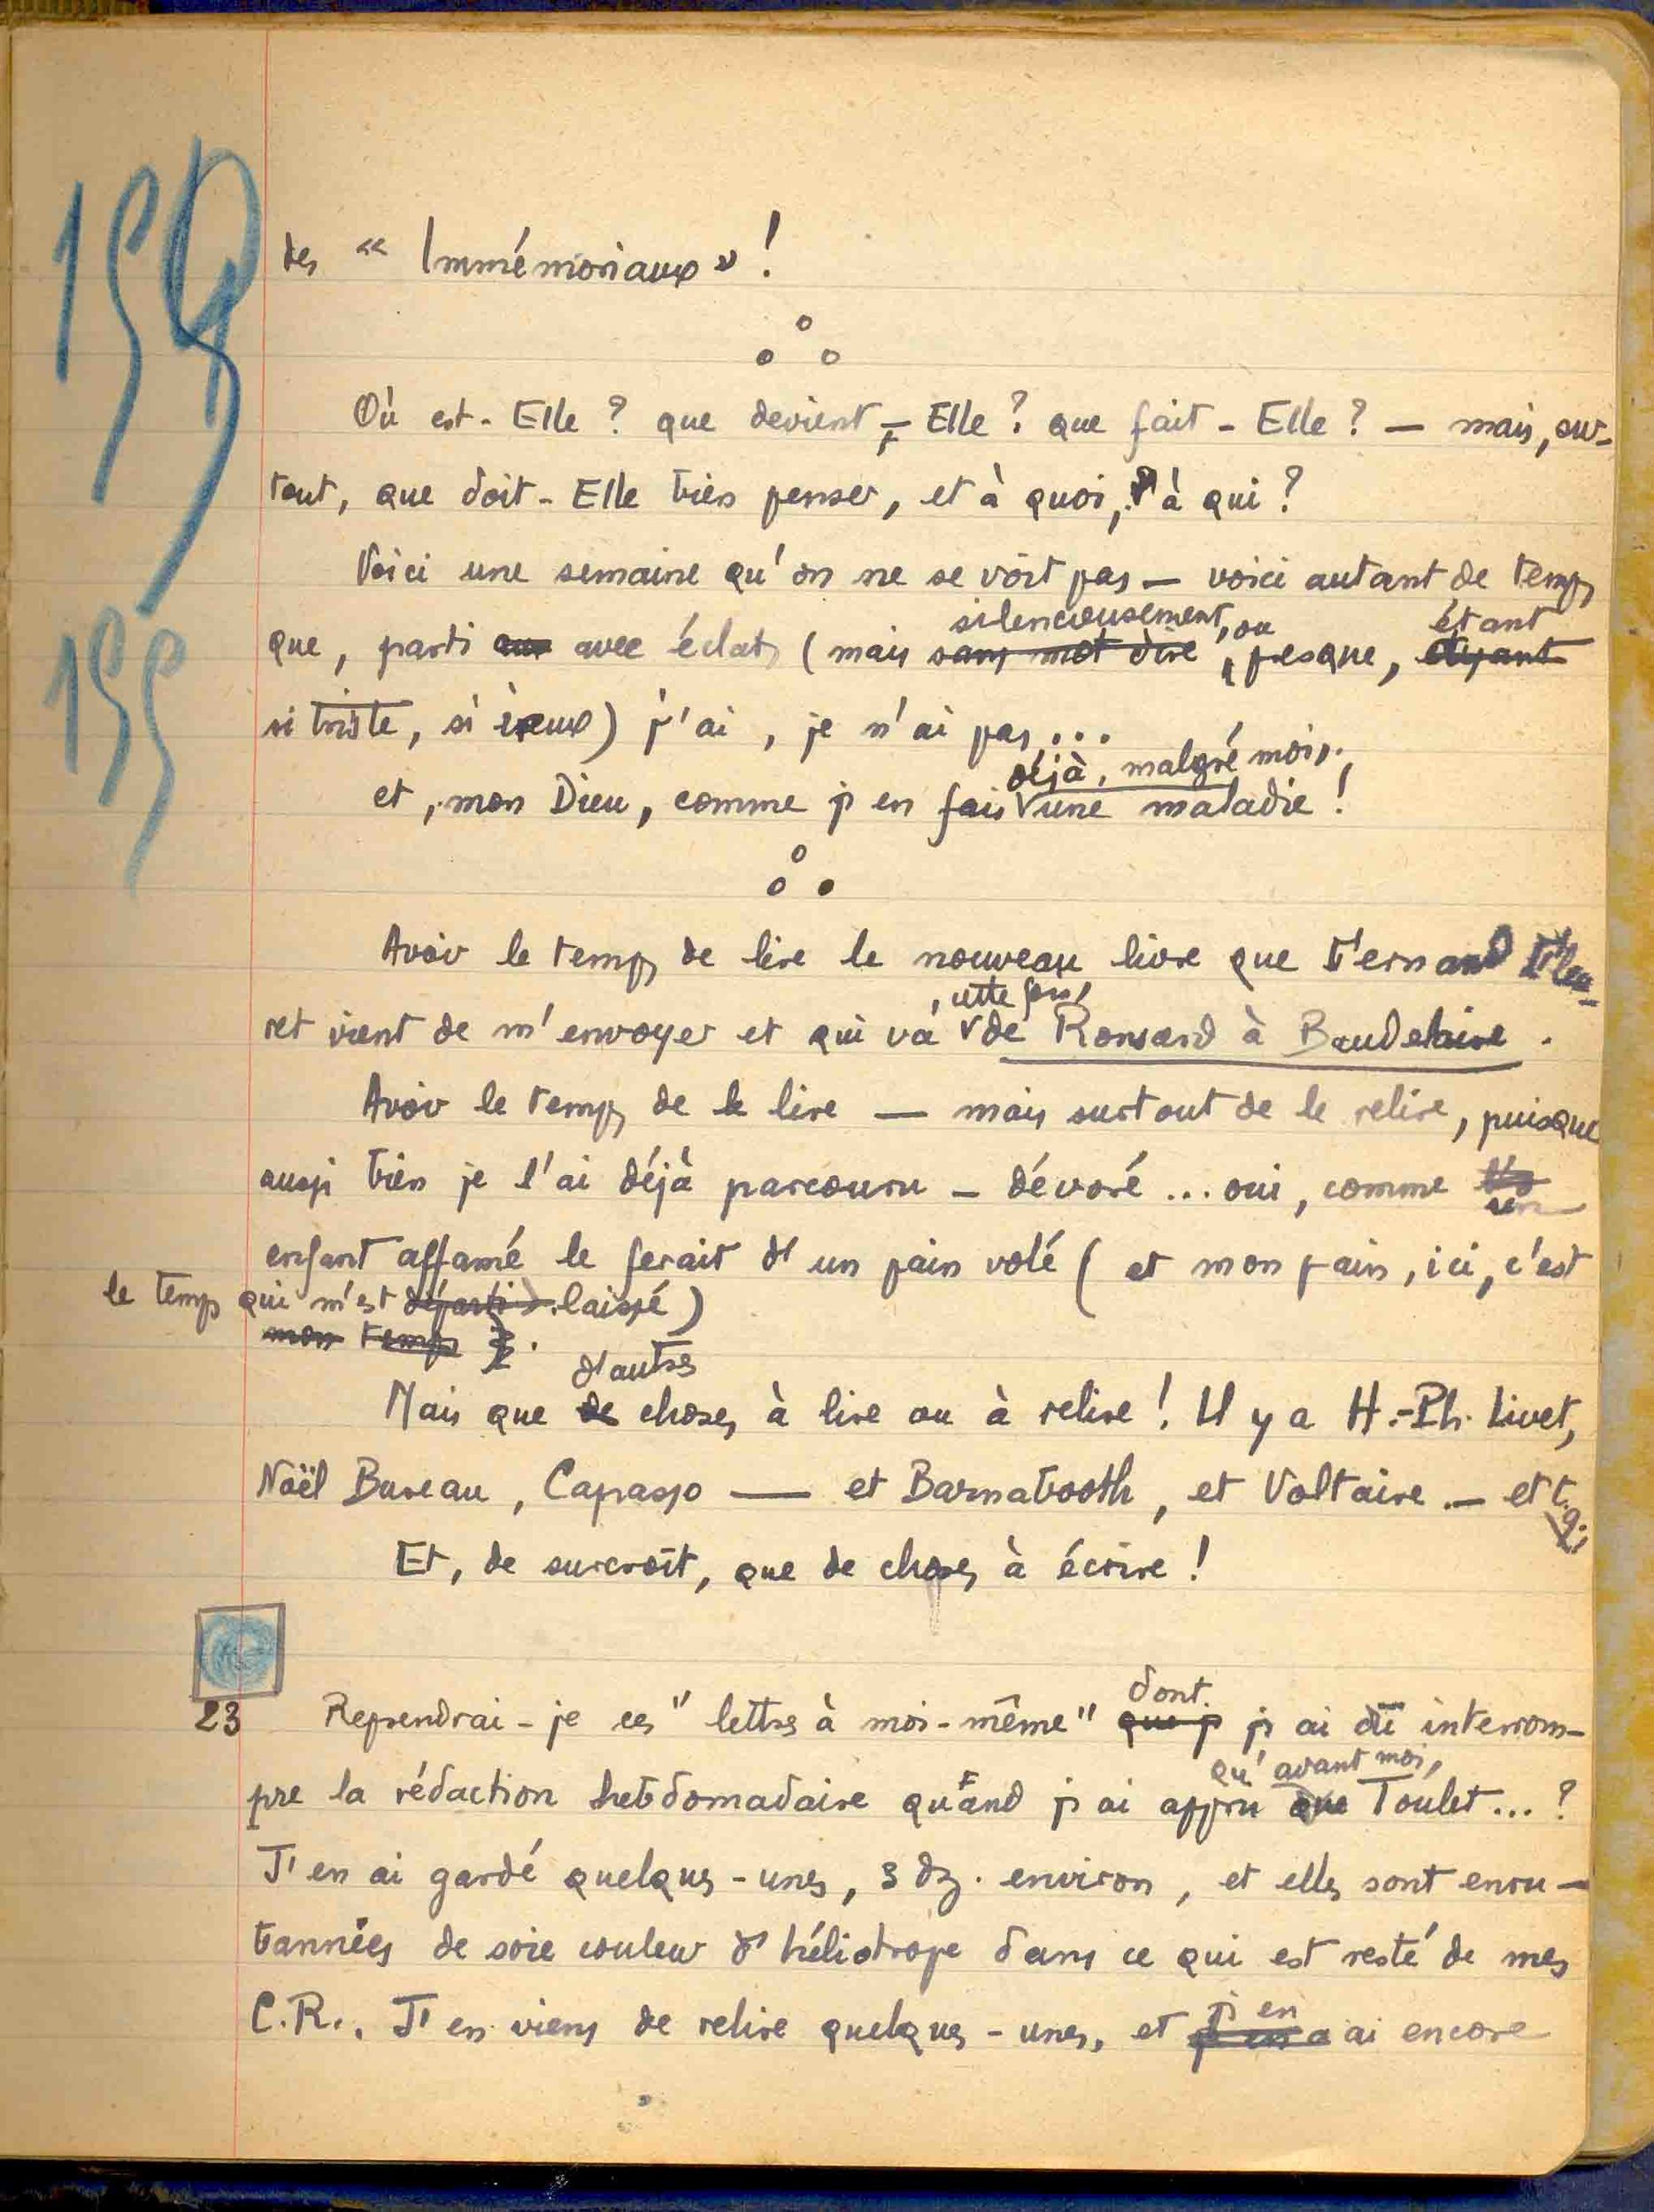 159
155
des « Immémoriaux » !
Où est-Elle ? que devient-Elle ? que fait-Elle ? — mais, sur-
tout, que doit-Elle bien penser, et à quoi, à qui ?
Voici une semaine qu'on ne se voit pas — voici autant de temps
silencieusement, ou étant
que, parti avec éclats (mais sans mot dire, presque, ayant
si triste, si ) j'ai, je n'ai pas...
déjà, malgré moi,
et, mon Dieu, comme j'en fais une maladie !
Avoir le temps de lire le nouveau livre que Fernand Fleu-
, cette fois,
ret vient de m'envoyer et qui va de Ronsard à Baudelaire.
Avoir le temps de le lire — mais surtout de le relire, puisque
aussi bien je l'ai déjà parcouru — dévoré... oui, comme un
enfant affamé le ferait d'un pain volé (et mon pain, ici, c'est
le temps qui m'est départi laissé)
mon temps
d'autres
Mais que de choses à lire ou à relire ! Il y a H.-Ph. Livet,
Noël Bureau, Capasso — et Barnabooth, et Voltaire — et t. q.
Et, de surcroît, que de choses à écrire !
23 Reprendrai-je ces "lettres à moi-même" que j' dont j'ai dû interrom-
qu'avant moi,
pre la rédaction hebdomadaire quand j'ai appru que Toulet... ?
J'en ai gardé quelques-unes, 3 dz. environ, et elles sont enru-
bannées de soie couleur d'héliotrope dans ce qui est resté de mes
C.R.. J'en viens de relire quelques-unes, et j'en ai encore